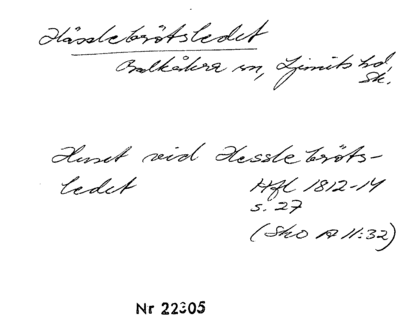 Hässlebrötsledet
Balkåkra sn, Ljunits hd,
Sk.
Huset vid Hesslebröts-
ledet
Hfl 1812-14
s. 27
(Sko A II:32)
Nr 22305